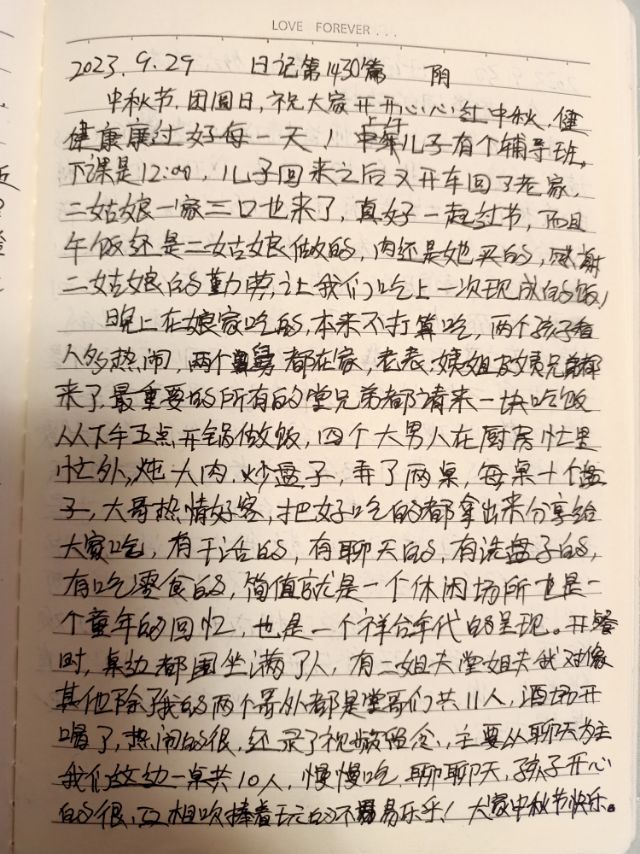 LOVE FOREVER...
2023.9.29 日记第1430篇 阴
中秋节,团圆日,祝大家开开心心过中秋,健
健康康过好每一天!上午儿子有个辅导班,
下课是12:00,儿子回来之后又开车回了老家,
二姑娘一家三口也来了,真好一起过节,而且
午饭还是二姑娘做的,肉还是她买的,感谢
二姑娘的勤劳,让我们吃上一次现成的饭!
晚上在娘家吃的,本来不打算吃,两个孩子看
人多热闹,两个舅都在家,老表,姨姐 姨兄弟都
来了,最重要的所有的堂兄弟都请来一块吃饭
从下午五点开锅做饭,四个大男人在厨房忙里
忙外,炖大肉,炒盘子,弄了两桌,每桌十个盘
子,大哥热情好客,把好吃的都拿出来分享给
大家吃,有干活的,有聊天的,有洗盘子的,
有吃零食的,简直就是一个休闲场所也是一
个童年的回忆,也是一个祥合年代的呈现。开餐
时,桌边都围坐满了人,有二姐夫堂姐夫我对像
其他除了我的两个哥外都是堂哥们共11人,酒场开
喝了,热闹的很,还录了视频留念,主要以聊天为主
我们这边一桌共10人,慢慢吃,聊聊天,孩子开心
的很,互相吹捧着玩的不易乐乎!大家中秋节快乐。